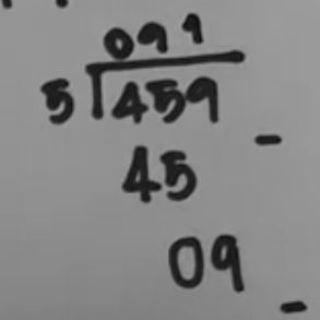 091
5 459
-
45
09
-